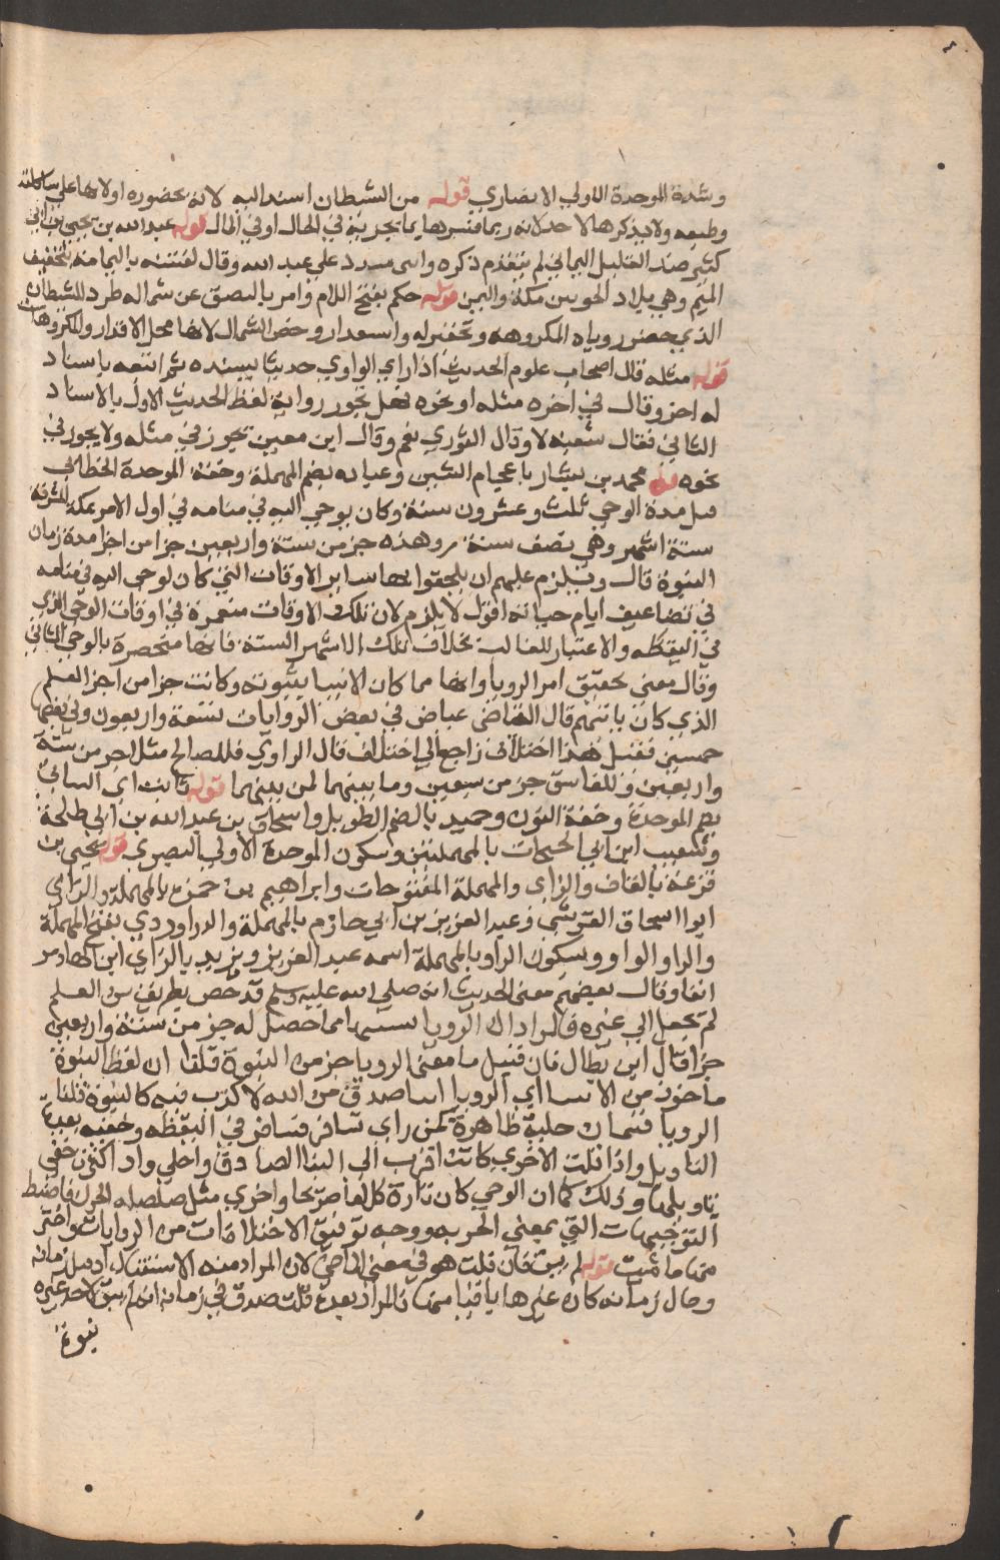 وشدة الموحدة الاولي الانصاري قوله من الشيطان اسند اليه لانه بحضوره اولانها علي شاكلته
وطبعه ولا يذكرها لاحد لانه ربما فسرها بما يحزنه في الحال او في المال قوله عبد الله بن يحيي بن ابي
كثير ضد القليل اليماني لم يتقدم ذكره واثني مسدد علي عبد الله وقال لقيته باليمامة بتخفيف
الميم وهي بلاد الجو بين مكة واليمن قوله حلم بفتح اللام وامر بالبصق عن شماله طرد الشيطان
الذي حضر روياه المكروهه وتحقير له واستقذار وخص الشمال لانها محل الاقذار والمكروهات
قوله مثله قال اصحاب علوم الحديث اذا راي الراوي حديثا بسنده ثم اتبعه باسناد
له اخر وقال في اخره مثله او نحوه فهل تجوز رواية لفظ الحديث الاول بالاسناد
الثاني فقال شعبة لا وقال الثوري نعم وقال ابن معين يجوز في مثله ولا يجوز في
نحوه قوله محمد بن بشار باعجام الشين وعباده بضم المهملة وخفة الموحدة الخطابي
قيل مدة الوحي ثلث وعشرون سنة وكان يوحي اليه في منامه في اول الامر بمكة المشرفة
ستة اشهر وهي نصف سنة وهذه جز من ستة واربعين جزا من اجزا مدة زمان
النبوة قال ويلزم عليهم ان يلحقوا بها ساير الاوقات التي كان يوحي اليه في منامه
في تضاعيف ايام حياته اقول لا يلزم لان تلك الاوقات منغمرة في اوقات الوحي الذي
في اليقظه والاعتبار للغالب بخلاف تلك الاشهر الستة فانها منحصرة بالوحي المنامي
وقال معني تحقيق امر الرويا وانها مما كان الانبيا يثبتونه وكانت جزا من اجزا العلم
الذي كان ياتيهم قال القاضي عياض في بعض الروايات سبعة واربعون وفي بعضها
خمسين فقيل هذا اختلاف راجع الي اختلاف حال الراوي فللصالح مثلا جز من ستة
واربعين وللفاسق جز من سبعين وما بينهما لمن بينهما قوله ثابت اي البناني
بضم الموحدة وخفة النون وحميد بالضم الطويل واسحاق بن عبد الله بن ابي طلحة
وشعيب ابن ابي الحبحاب بالمهملتين وسكون الموحدة الاولي البصري قوله يحيي بن
قزعة بالقاف والزاي والمهملة المفتوحات وابراهيم بن حمزة بالمهملة والزاي
ابوا اسحاق القرشي وعبد العزيز بن ابي حازم بالمهملة والدراوردي بفتح المهملة
والرا والواو وسكون الرا وبالمهملة اسمه عبد العزيز ويزيد بالزاي ابن الهاد مر
انفا وقال بعضهم معني الحديث انه صلي الله عليه وسلم قد خص بطريق من العلم
لم تحصل الي غيره فالمراد ان الرويا نسبتها مما حصل له جز من ستة واربعين
جزا قال ابن بطال فان قيل ما معني الرويا جز من النبوة قلنا ان لفظ النبوة
ماخوذ من الانبا اي الرويا انبا صدق من الله لا كذب فيه كالنبوة قلنا
الرويا قسمان جلية ظاهرة كمن راي تسافر فسافر في اليقظه وخفيه بعيدة
التاويل واذا قلت الاخري كانت اقرب الي النبا الصادق واجلي واذا كثرت خفي
تاويلها وذلك كما ان الوحي كان تارة كلاما صريحا واخري مثل صلصله الجرس فاضبط
التوجيهات التي بمعني الحر به ووجه توفيق الاختلافات من الروايات واختر
منها ما شيت قوله لم يبق فان قلت هو في معني الماضي لان المراد منه الاستقبال اذ قبل زمانه
وحال زمانه كان غيرها باقيا منها فالمراد بعده قلت صدق في زمانه انه لم يبق لاحد غيره
نبوة